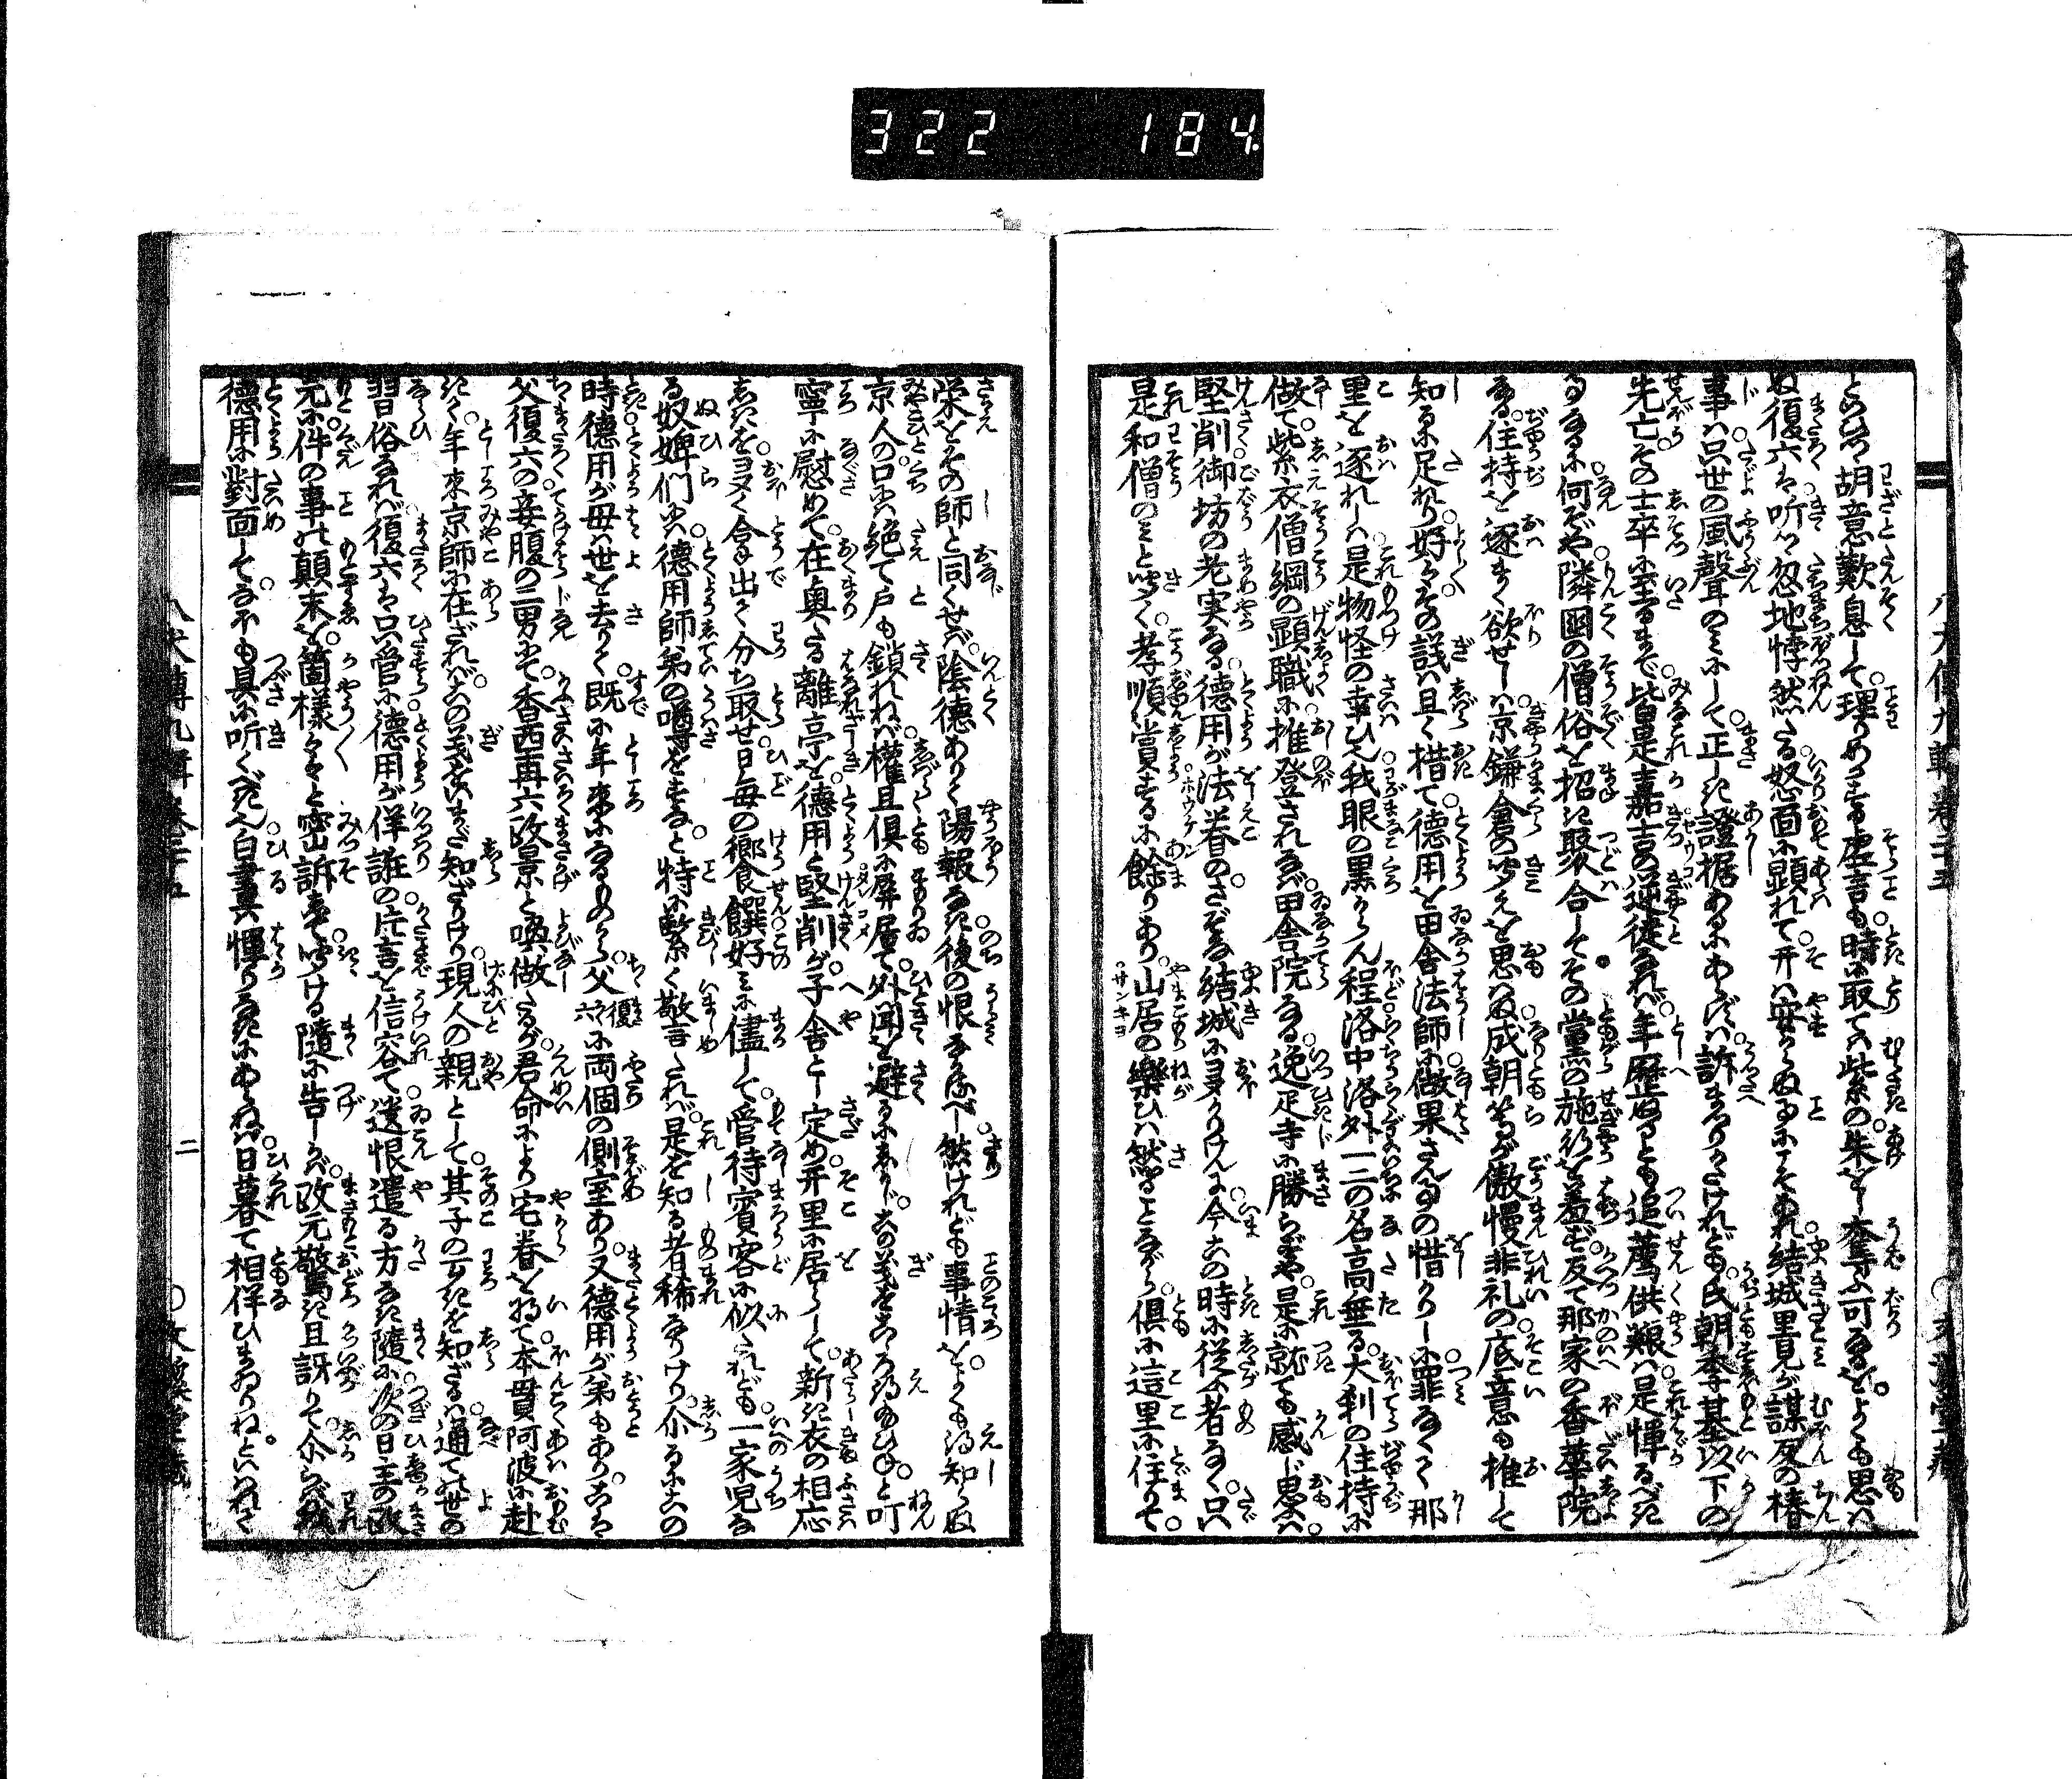 322 184
といひつゝ胡意歎息して理りめきたる虚言も時に取ては紫の朱を奪ふ可なるをよくも思はぬ
復六は听つゝ忽地悖然たる怒面に顕れて开は安からぬ事にこそあれ結城里見が謀反の椿
事は只世の風聲のみにして正しき證据あるにあらざれば訴まうしかたけれども氏朝季基以下の
先亡その士卒に至るまで皆是嘉吉の逆徒なれば年歴ぬるとも追薦供養は是憚るべき
なるに何ぞや隣國の僧俗を招き聚合してその黨の施行を羞ぢ反て那家の香華院
なる住持を逐まく欲せしは京鎌倉の聞えを思はぬ成朝等が傲慢非礼の底意も推して
知るに足れり好々その議は且く措て德用を田舎法師に做果さん事の惜かりしに罪なくて那
里を逐れしは是物怪の幸ひ我眼の黒からん程洛中洛外一二の名高き大刹の住持に
做て紫衣僧綱の顕職に推登されなば田舎院なる逸疋寺に勝らずや是に就ても感じ思ふは
堅削御坊の老実なる德用が法眷のさぞな結城に多かりけんに今この時に従ふ者なく只
是和僧のみと聞く孝順賞するに餘りあり山居の樂ひは然ることながら倶に這里に住りて
栄をその師と同くせば陰德ありて陽報なき後の恨なかるべし然けれども事情をよくも得知らぬ
京人の口には絶て戸も鎖れねば權且倶に屏居て外聞を避るにしかじこの義をこゝろ得ねかしと叮
寧に慰めて在奥なる離亭を德用と堅削が子舎とし定め开里に居らして新き衣の相応
しきを多く合み出て分ち取せ日毎の郷食饌好みに儘して管待賓客に似たれども一家児な
る奴婢們には德用師弟の噂をすなと特に緊く敬言たれば是を知る者稀なりけり尒るにこの
時德用が母は世を去りて既に年来になるものから父復六に両個の側室あり又德用が弟もありこは
父復六の妾腹の二男にて香西再六政景と喚做たるが君命により宅眷を将て本貫阿波に赴
きて年来京師に在ざればこの義をいまだ知ざりけり現人の親として其子の可きを知ざるは通ての世の
習俗なれば復六は只管に德用が佯誑の片言を信容て遺恨遣る方なき隨に次の日主の政
元に件の事の顛末を箇様々々と密訴して聞ける隨に告しかば政元驚き且訝りて尒らば我
德用に對面してなほも具に听くべきに白晝は憚りなきにあらねば日暮て相伴ひまゐりねといはれて
八犬傳九輯巻三十五　二